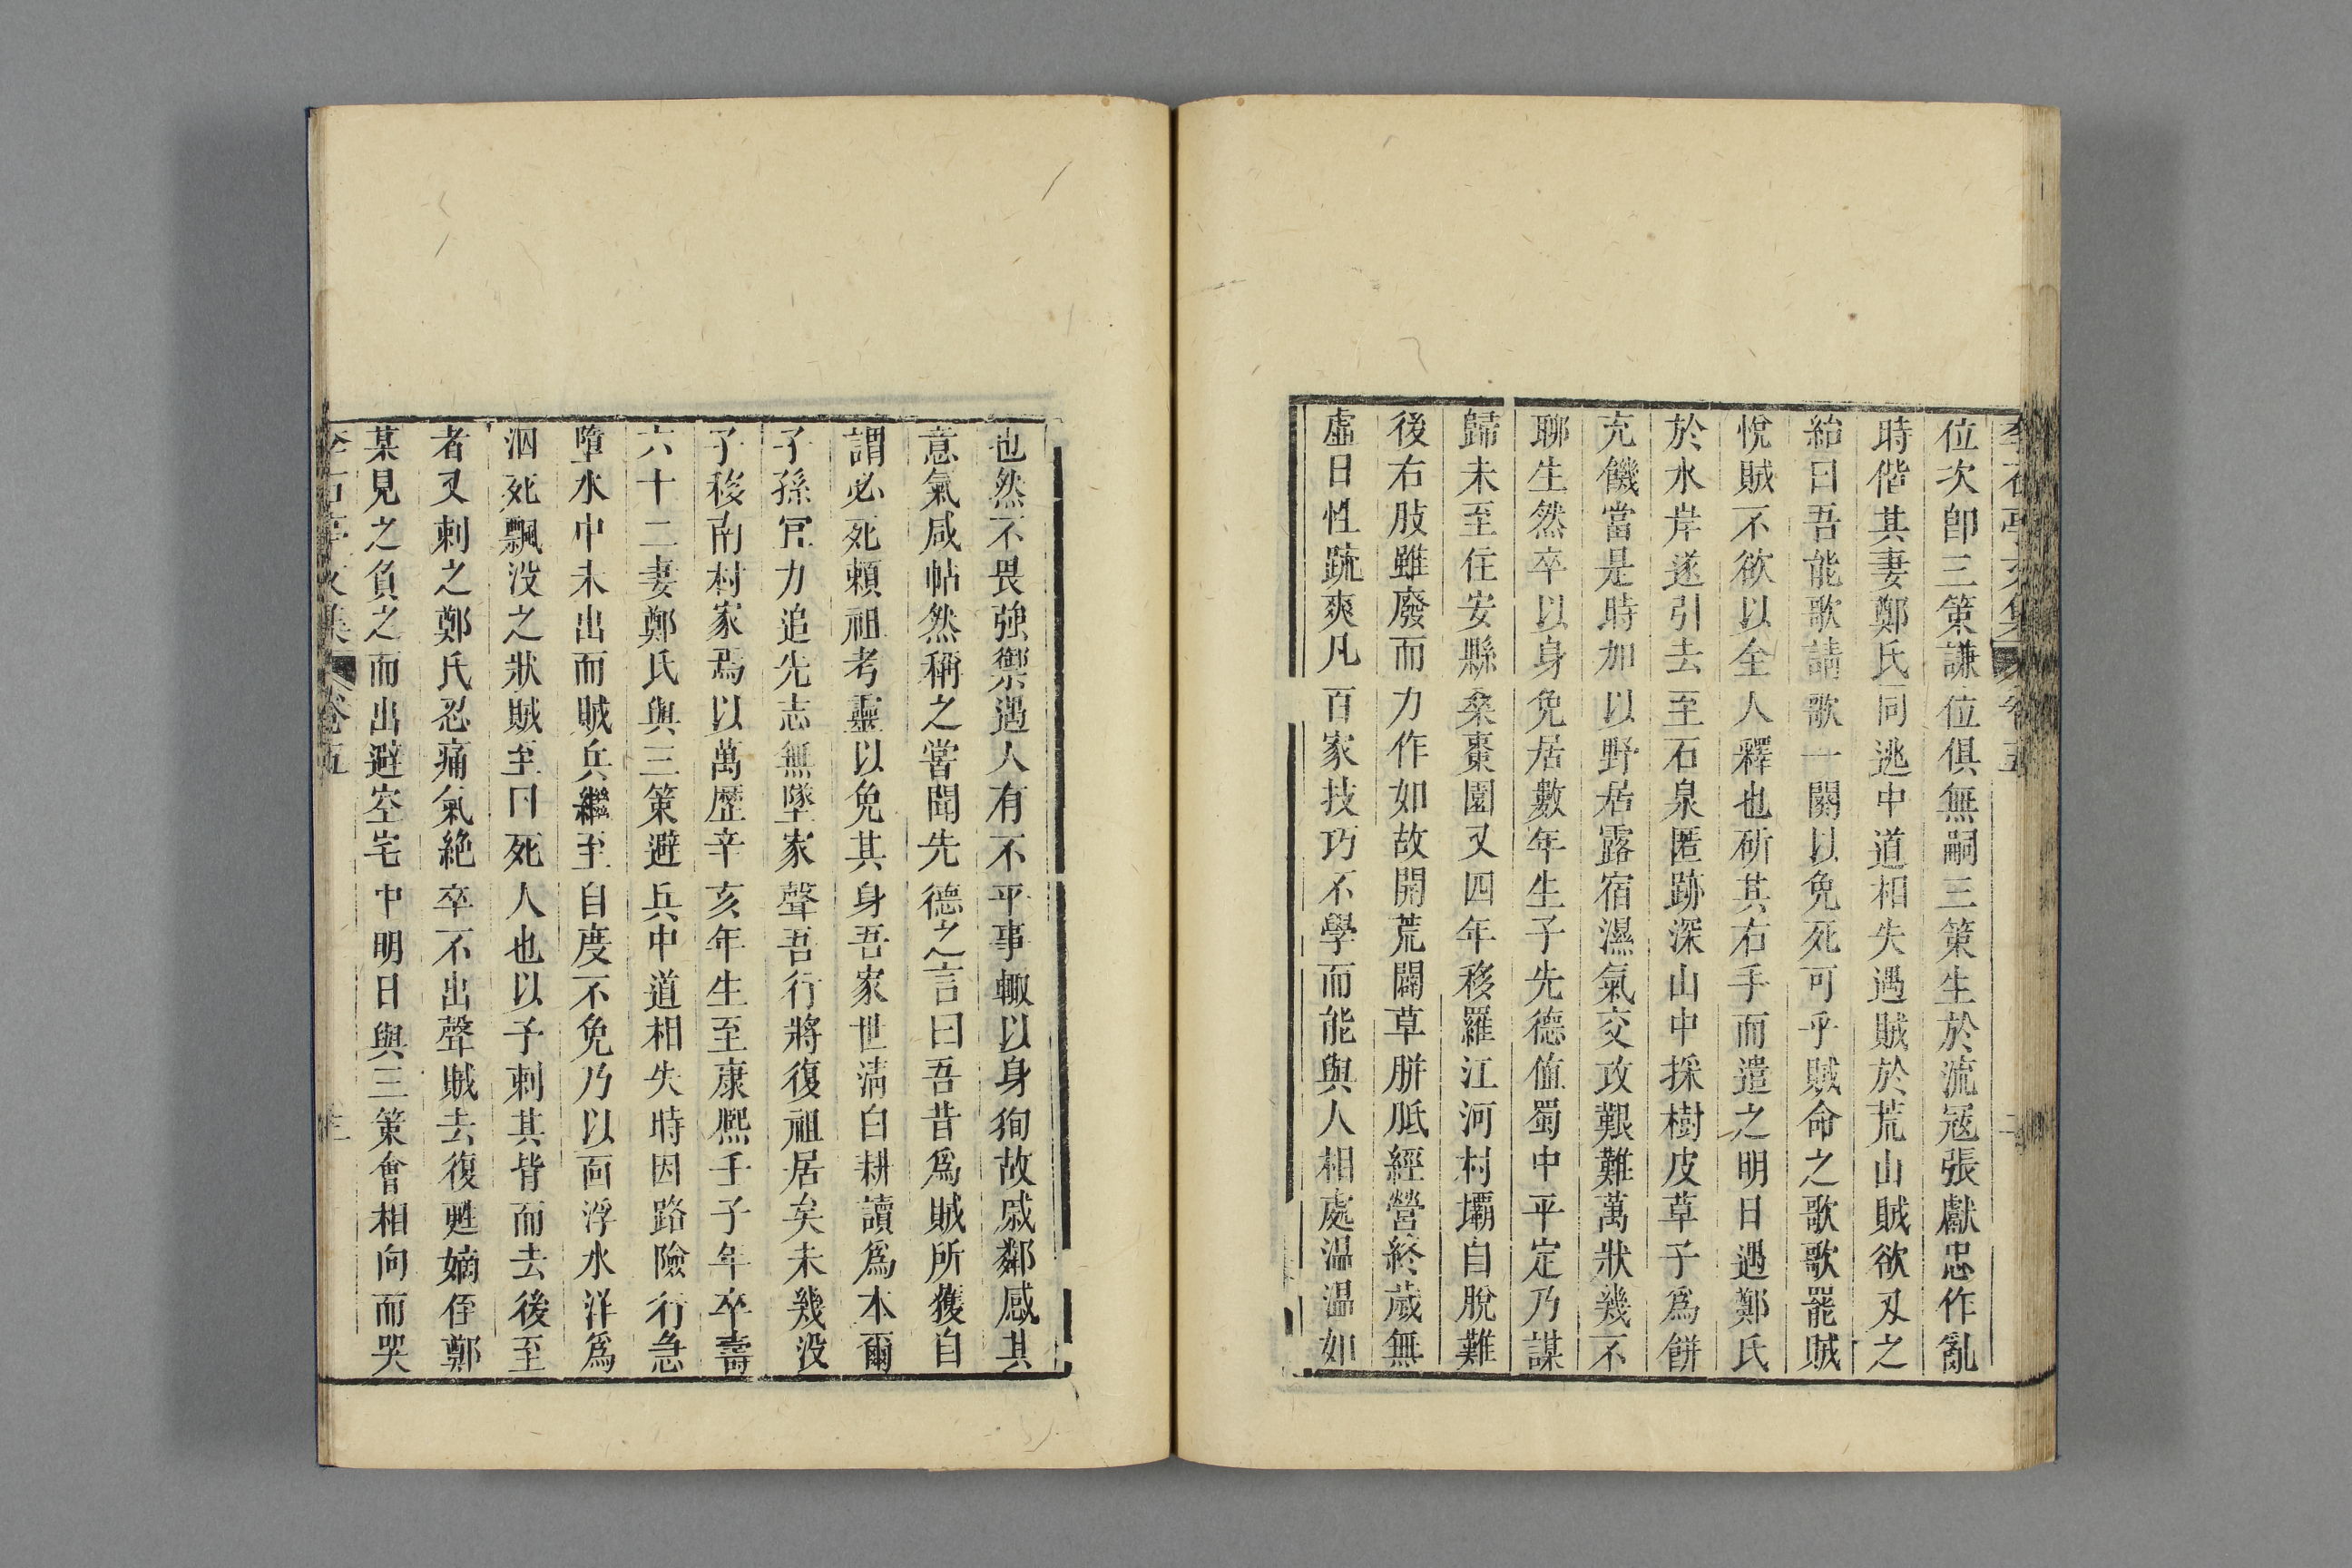 位次卽三策謙位俱無嗣三策生於流寇張獻忠作亂
時偕其妻鄭氏同逃中道相失遇賊於荒山賊欲刄之
紿曰吾能歌請歌一闋以免死可乎賊命之歌歌罷賊
悅賊不欲以全人釋也斫其右手而遣之明日遇鄭氏
於水岸遂引去至石泉匿跡深山中採樹皮草子爲餅
充饑當是時加以野居露宿濕氣交攻艱難萬狀幾不
聊生然卒以身免居數年生子先德値蜀中平定乃謀
歸未至住安縣桑棗園又四年移羅江河村壩自脫難
後右肢雖廢而力作如故開荒闢草胼胝經營終歲無
虛日性疏爽凡百家技巧不學而能與人相處温温如
也然不畏強禦遇人有不平事輙以身狥故戚鄰感其
意氣咸帖然稱之嘗聞先德之言曰吾昔爲賊所獲自
謂必死賴祖考靈以免其身吾家世淸白耕讀爲本爾
子孫冝力追先志無墜家聲吾行將復祖居矣未幾没
子移南村家焉以萬歷辛亥年生至康熙壬子年卒壽
六十二妻鄭氏與三策避兵中道相失時因路險行急
墮水中未出而賊兵繼至自度不免乃以面浮水洋爲
泅死飄没之狀賊至曰死人也以子刺其背而去後至
者又刺之鄭氏忍痛氣絶卒不出聲賊去復甦嫡侄鄭
某見之負之而出避空宅中明日與三策會相向而哭
卷五